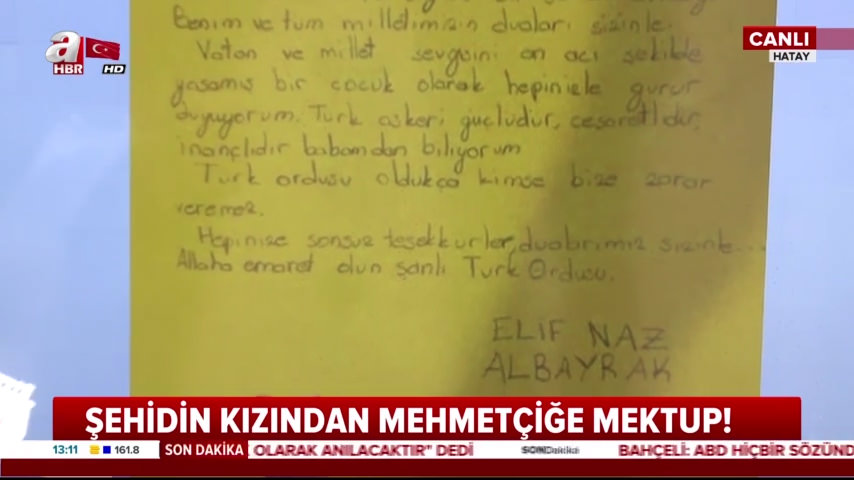 Benim ve tüm milletimizin duaları sizinle.
Vatan ve millet sevgisini en acı şekilde
yaşamış bir çocuk olarak hepinizle gurur
duyuyorum. Türk askeri güçlüdür, cesaretlidir,
inançlıdır babamdan biliyorum
Türk ordusu oldukça kimse bize zarar
veremez.
Hepinize sonsuz teşekkürler, dualarımız sizinle...
Allaha emanet olun şanlı Türk Ordusu.
ELİF NAZ
ALBAYRAK
a
HBR
HD
CANLI
HATAY
ŞEHİDİN KIZINDAN MEHMETÇİĞE MEKTUP!
13:11 161.8 SON DAKİKA OLARAK ANILACAKTIR" DEDİ SON Dakika BAHÇELİ: ABD HİÇBİR SÖZÜND